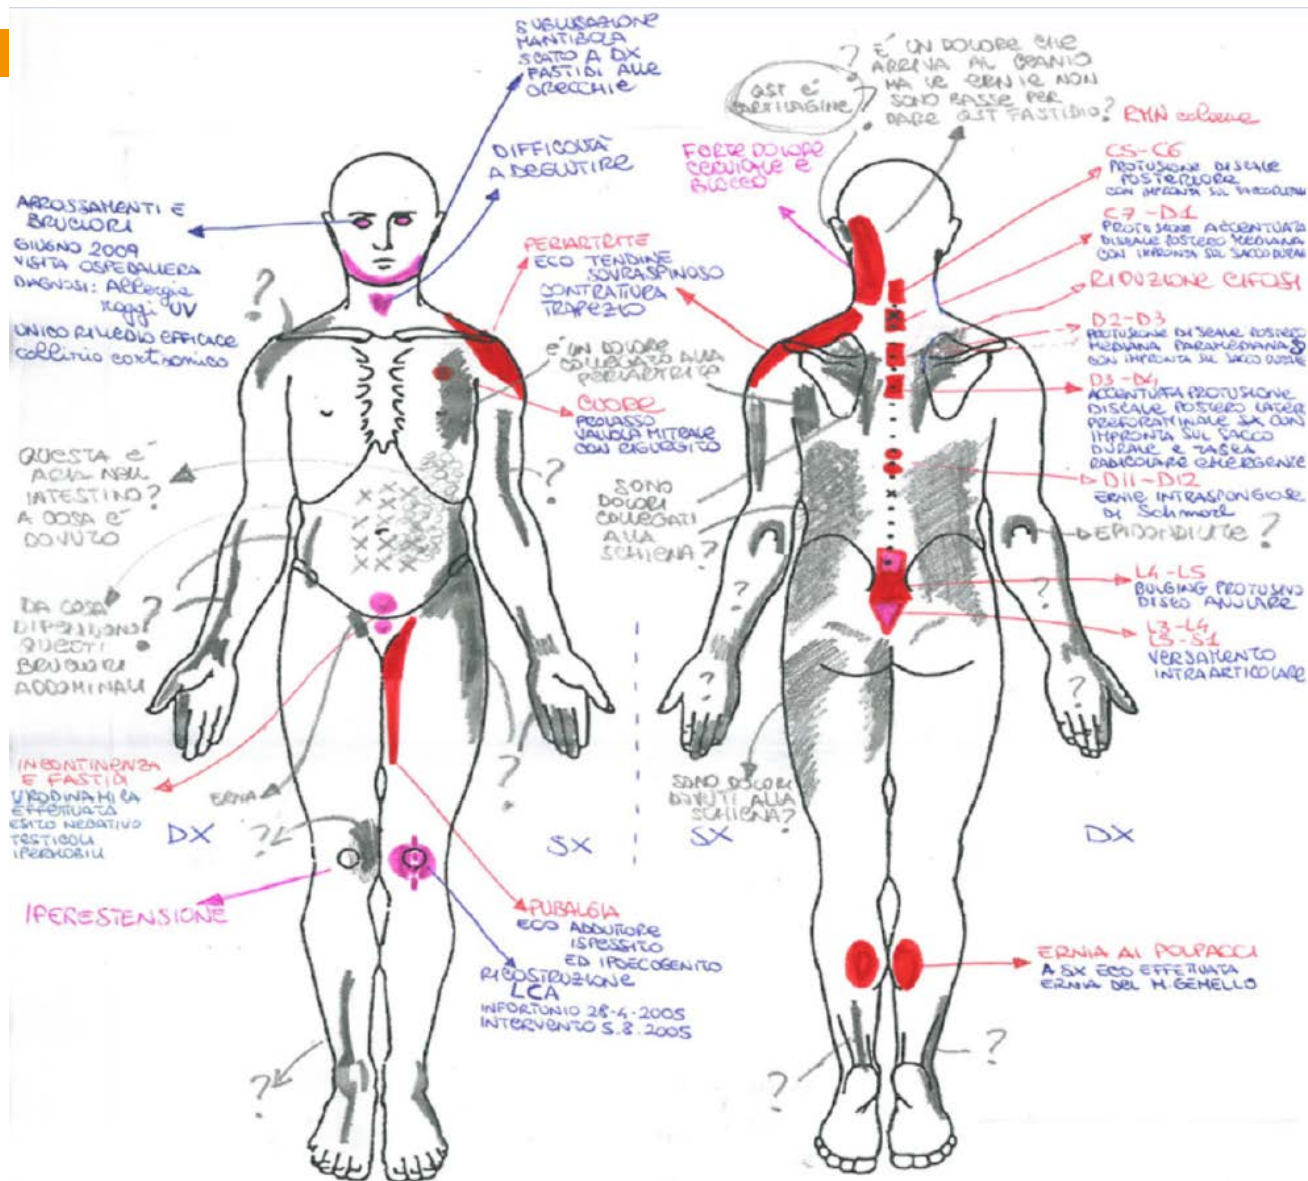 SUBLUSAZIONE
MANTIBOLA
SCATO A DX
FASTIDI ALLE
ORECCHIE
DIFFICOLTÀ
A DEGLUTIRE
ARROSSAMENTI E
BRUCIORI
GIUGNO 2009
VISITA OSPEDALIERA
DIAGNOSI: Allergia
raggi UV
UNICO RIMEDIO EFFICACE
collirio cortisonico
?
PERIARTRITE
ECO TENDINE
SOVRASPINOSO
CONTRATTURA
TRAPEZIO
È UN DOLORE
COLLEGATO ALLA
PERIARTRITE
CUORE
PROLASSO
VALVOLA MITRALE
CON RIGURGITO
QUESTA È
ARIA NELL
INTESTINO?
A COSA È
DOVUTO
?
DA COSA
DIPENDONO
QUESTI
BRUCIORI
ADDOMINALI
?
INCONTINENZA
E FASTIDI
URODINAMICA
EFFETTUATA
ESITO NEGATIVO
TESTICOLI
IPERMOBILI
ERNIA
?
?
?
DX
SX
IPERESTENSIONE
PUBALGIA
ECO ADDUTTORE
ISPESSITO
ED IPOECOGENITO
RICOSTRUZIONE
LCA
INFORTUNIO 28-4-2005
INTERVENTO 5.8.2005
?
QST È
CARTILAGINE
?
?
?
È UN DOLORE CHE
ARRIVA AL CRANIO
MA LE ERNIE NON
SONO BASSE PER
DARE QST FASTIDIO?
FORTE DOLORE
CERVICALE E
BLOCCO
RMN colonna
C5-C6
PROTUSIONE DISCALE
POSTERIORE
CON IMPRONTA SUL SACCO DURALE
C7-D1
PROTUSIONE ACCENTUATA
DISCALE POSTERO MEDIANA
CON IMPRONTA SUL SACCO DURALE
RIDUZIONE CIFOSI
D2-D3
PROTUSIONE DISCALE POSTERO
MEDIANA PARAMEDIANA S
CON IMPRONTA SUL SACCO DURALE
D3-D4
ACCENTUATA PROTUSIONE
DISCALE POSTERO LATER
PREFORAMINALE SX CON
IMPRONTA SUL SACCO
DURALE E TASCA
RADICOLARE EMERGENTE
D11-D12
ERNIE INTRASPONGIOSE
DI Schmorl
SONO
DOLORI
COLLEGATI
ALLA
SCHIENA?
EPICONDILITE?
L4-L5
BULGING PROTUSIVO
DISCO ANULARE
L3-L4
L5-S1
VERSAMENTO
INTRAARTICOLARE
?
?
?
?
?
?
SONO DOLORI
DOVUTI ALLA
SCHIENA?
SX
DX
ERNIA AI POLPACCI
A SX ECO EFFETTUATA
ERNIA DEL M. GEMELLO
?
?